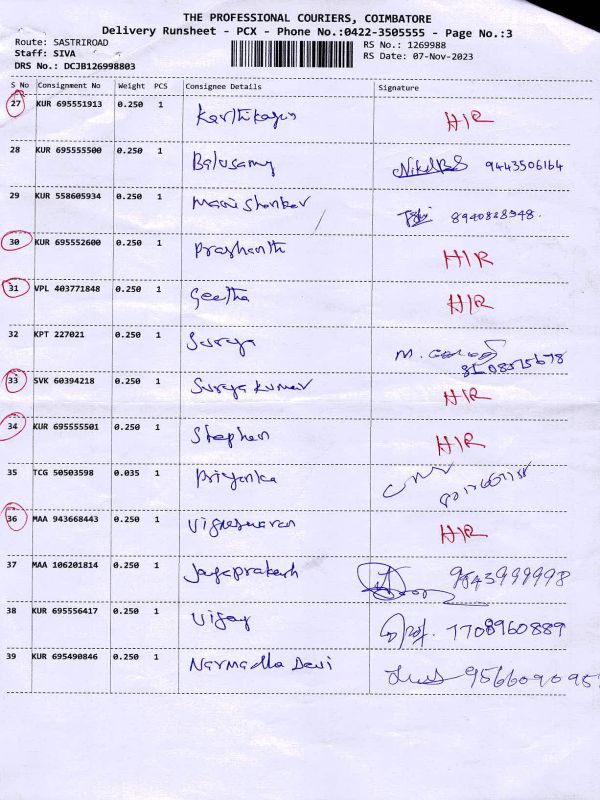 THE PROFESSIONAL COURIERS, COIMBATORE
Delivery Runsheet - PCX - Phone No.:0422-3505555 - Page No.:3
Route: SASTRIROAD
RS No.: 1269988
Staff: SIVA
RS Date: 07-Nov-2023
DRS No.: DCJB126998803
S No Consignment No Weight PCS Consignee Details Signature
27 KUR 695551913 0.250 1 Karthikayin H/R
28 KUR 695555500 0.250 1 Balusamy 9443506164
29 KUR 558605934 0.250 1 Mani Shankar 8940828948.
30 KUR 695552600 0.250 1 Prashanth H/R
31 VPL 403771848 0.250 1 Geetha H/R
32 KPT 227021 0.250 1 Surya M.
33 SVK 60394218 0.250 1 Surya Kumar H/R
34 KUR 695555501 0.250 1 Stephen H/R
35 TCG 50503598 0.035 1 Priyanka
36 MAA 943668443 0.250 1 Vigneswaran H/R
37 MAA 106201814 0.250 1 Jayaprakash 9843999998
38 KUR 695556417 0.250 1 Vijay 7708960889
39 KUR 695490846 0.250 1 Narmadha Devi